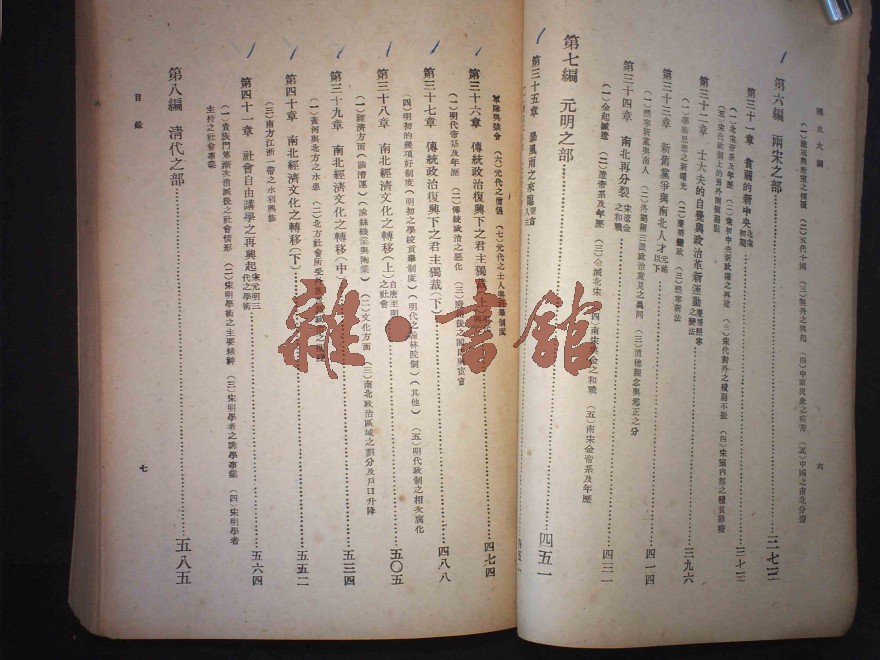 國史大綱
第六編 兩宋之部 三七三
第三十一章 貧弱的新中央 北宋初期 三七三
(一)北宋帝系及年歷 (二)宋初中央新政權之再建 (三)宋代對外之積弱不振 (四)宋室內部之積貧難療
(五)宋代政制上的另外兩個弱點
第三十二章 士大夫的自覺與政治革新運動 慶曆熙寧之變法 三九六
(一)學術思想之新曙光 (二)慶曆變政 (三)熙寧新法
第三十三章 新舊黨爭與南北人才 元祐以下 四一四
(一)熙寧新黨與南人 (二)洛蜀朔三派政治意見之異同 (三)道德觀念與邪正之分
第三十四章 南北再分裂 宋遼金之和戰 四三一
(一)金起滅遼 (二)遼帝系及年歷 (三)金滅北宋 (四)南宋與金之和戰 (五)南宋金帝系及年歷
第七編 元明之部 四五一
第三十五章 暴風雨之來臨
六
(六)元代之僧侶 (七)元代之士人與科舉制度
第三十六章 傳統政治復興下之君主獨裁(上) 四七四
(一)明代帝系及年歷 (二)傳統政治之惡化
第三十七章 傳統政治復興下之君主獨裁(下) 四八八
(四)明初的幾項好制度(明初之學校貢舉制度)(明代之翰林院制)(其他) (五)明代政制之相次腐化
第三十八章 南北經濟文化之轉移(上) 自唐至明之社會 五〇五
(一)經濟方面(論漕運)(論絲織業與陶業) (二)文化方面 (三)南北政治區域之劃分及戶口升降
第三十九章 南北經濟文化之轉移(中) 五三四
(一)黃河與北方之水患 (二)北方社會所受
第四十章 南北經濟文化之轉移(下) 五五二
(三)南方江浙一帶之水利興修
第四十一章 社會自由講學之再興起 宋元明三代之學術 五六四
(一)貴族門第漸次消滅後之社會情形 (二)宋明學術之主要精神 (三)宋明學者之講學事業 (四)宋明學者
主持之社會事業
第八編 清代之部 五八五
目錄
七
雜·書館